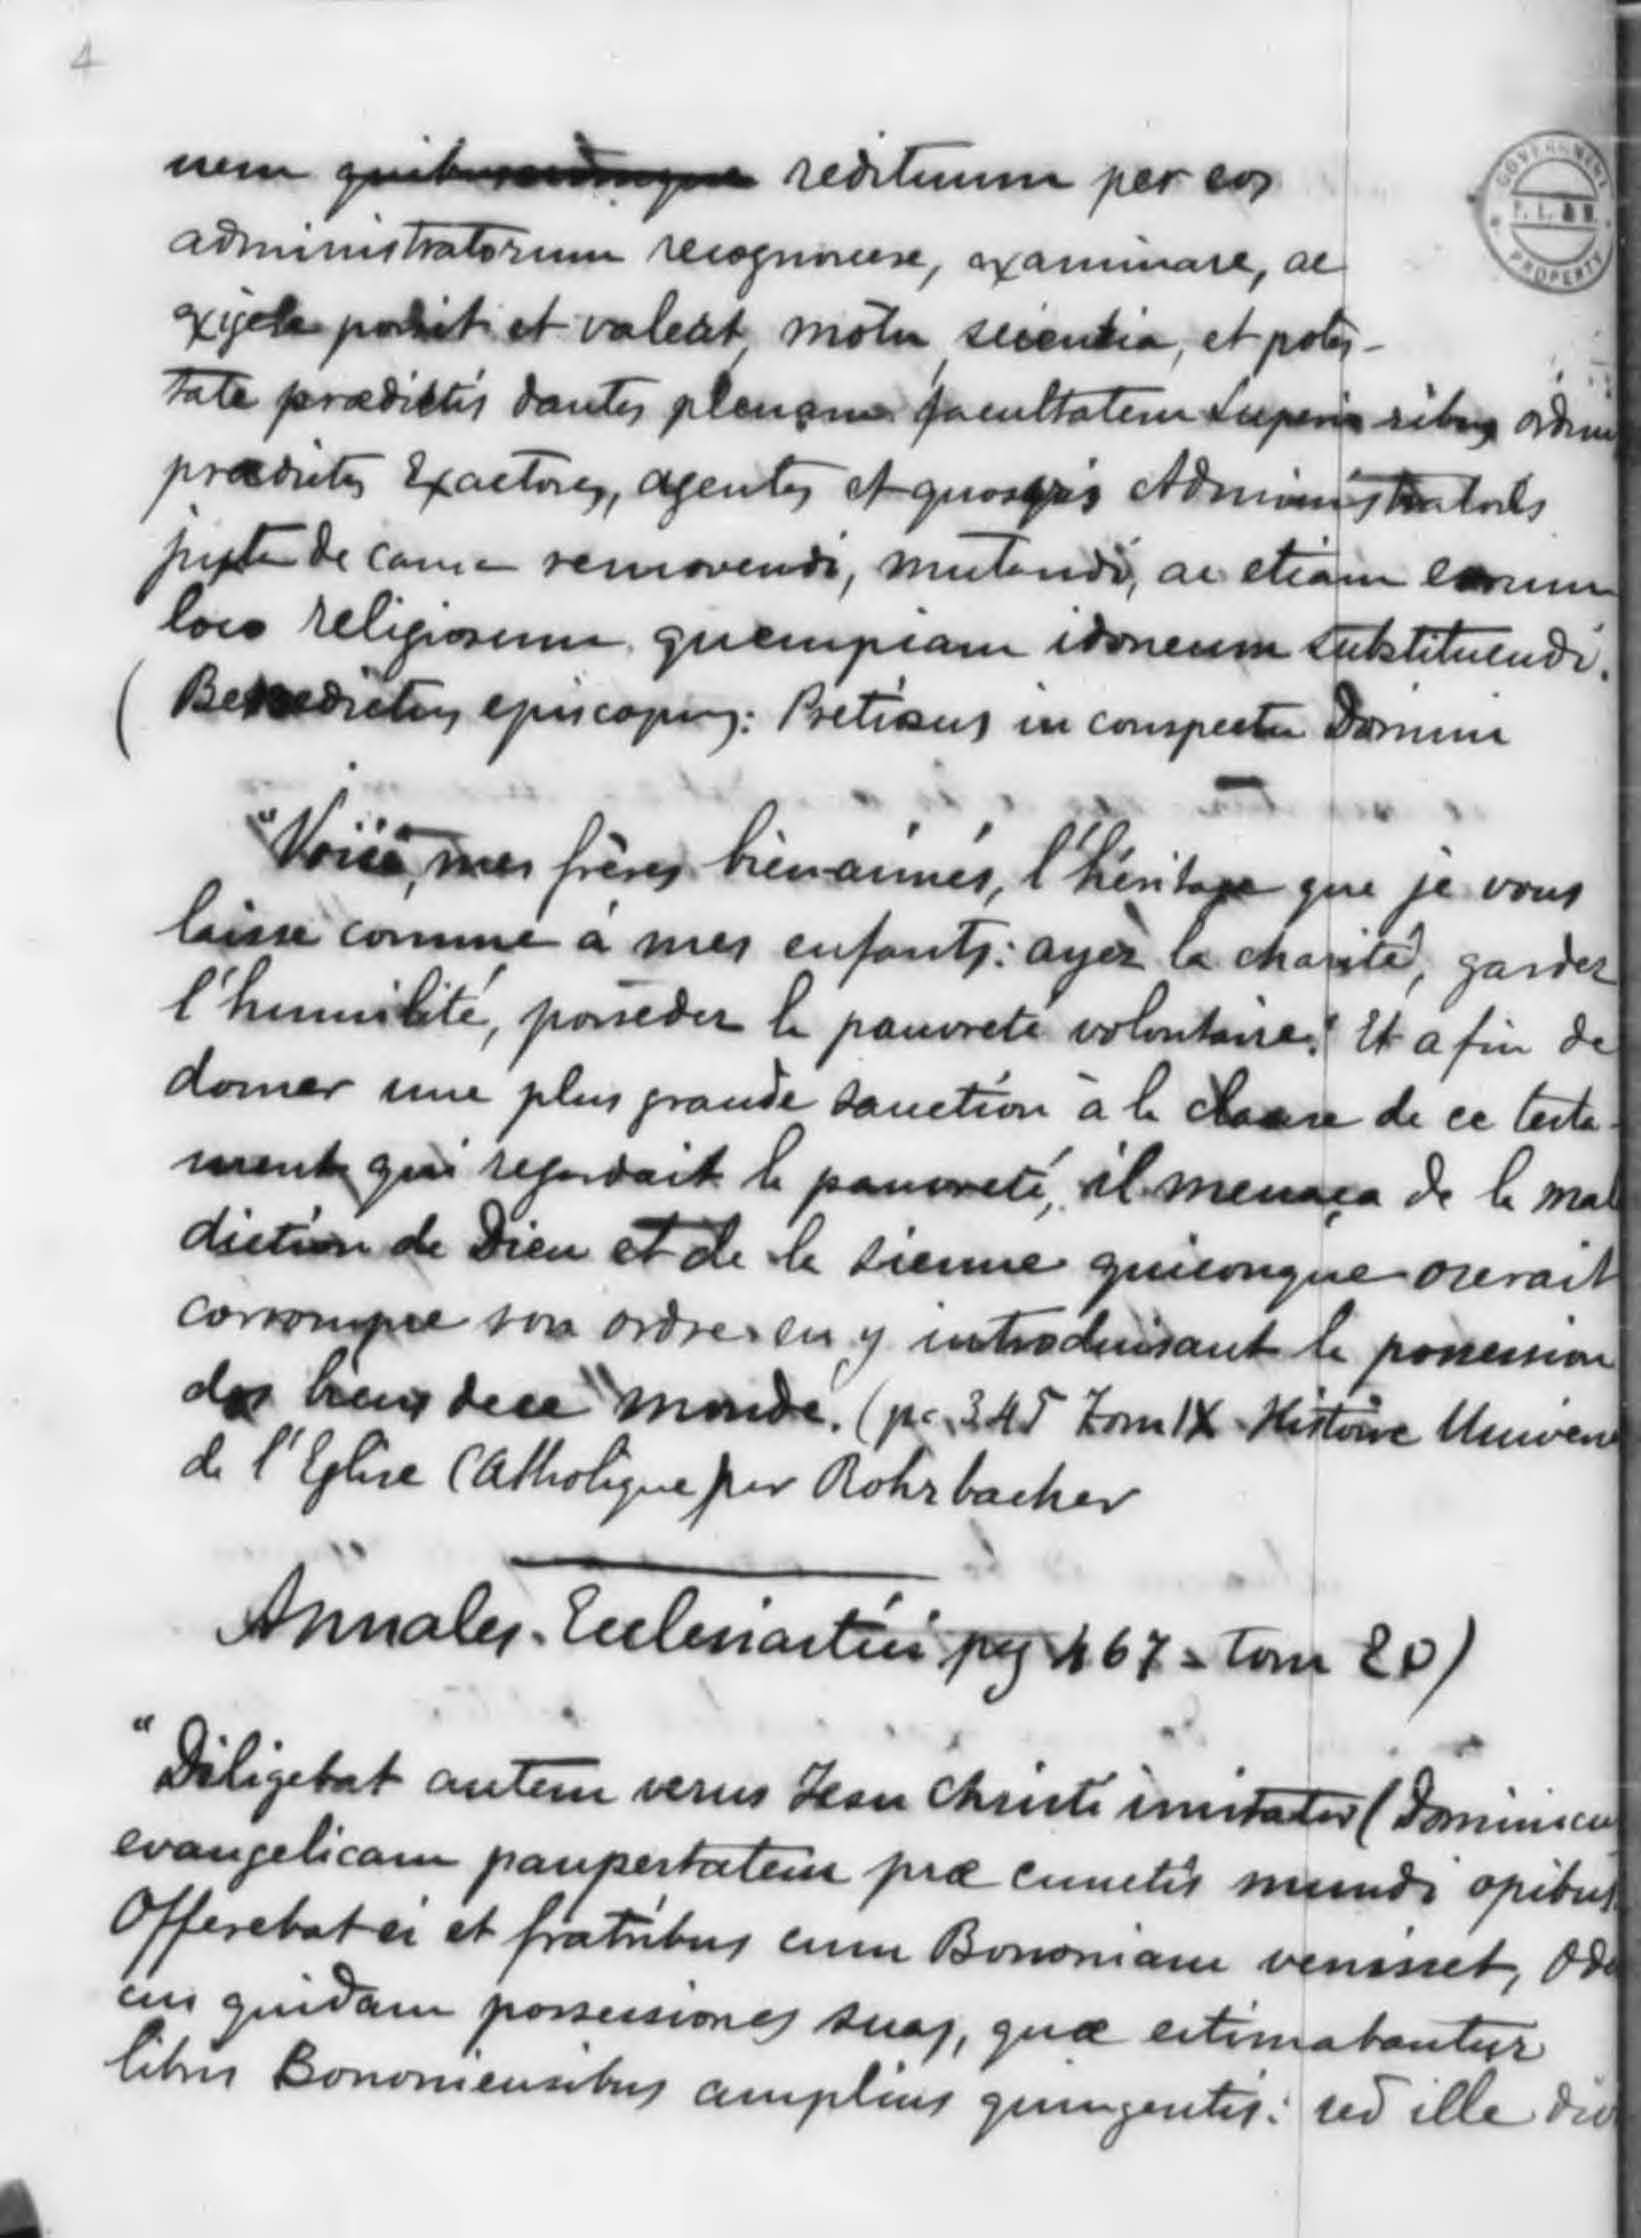 4
GOVERNMENT
P. L. & N.
PROPERTY
nem redituum per eos
administratorum recognoscere, examinare, ac
exigere possit et valeat, motu, scientia, et potes-
tate prædictis dantes plenam facultatem Superioribus ordinis
prædictis Exactores, agentes et quosvis Administratores
juste de causa removendi, mutandi, ac etiam eorum
loco religiosum quempiam idoneum substituendi.
(Benedictus episcopus: Pretiosus in conspectu Domini
"Voici, mes frères bien-aimés, l'héritage que je vous
laisse comme à mes enfants: ayez la charité, gardez
l'humilité, posseder la pauvreté volontaire." Et afin de
donner une plus grande sanction à la clause de ce testa-
ment qui regardait la pauvreté, il menaça de la mal
diction de Dieu et de la sienne quiconque oserait
corrompre son ordre en y introduisant la possession
des biens de ce monde. (pc. 345 Tom IX Histoire Univers
de l'Eglise Catholique par Rohrbacher
Annales Ecclesiastici pag 467 - tom 20)
"Diligebat autem verus Jesu Christi imitator (Dominicu
evangelicam paupertatem præ cunctis mundi opibus
Offerebat ei et fratribus cum Bononiam venisset, Ode
cus quidam possessiones suas, quæ estimabantur
libris Bononiensibus amplius quingentis: sed ille div